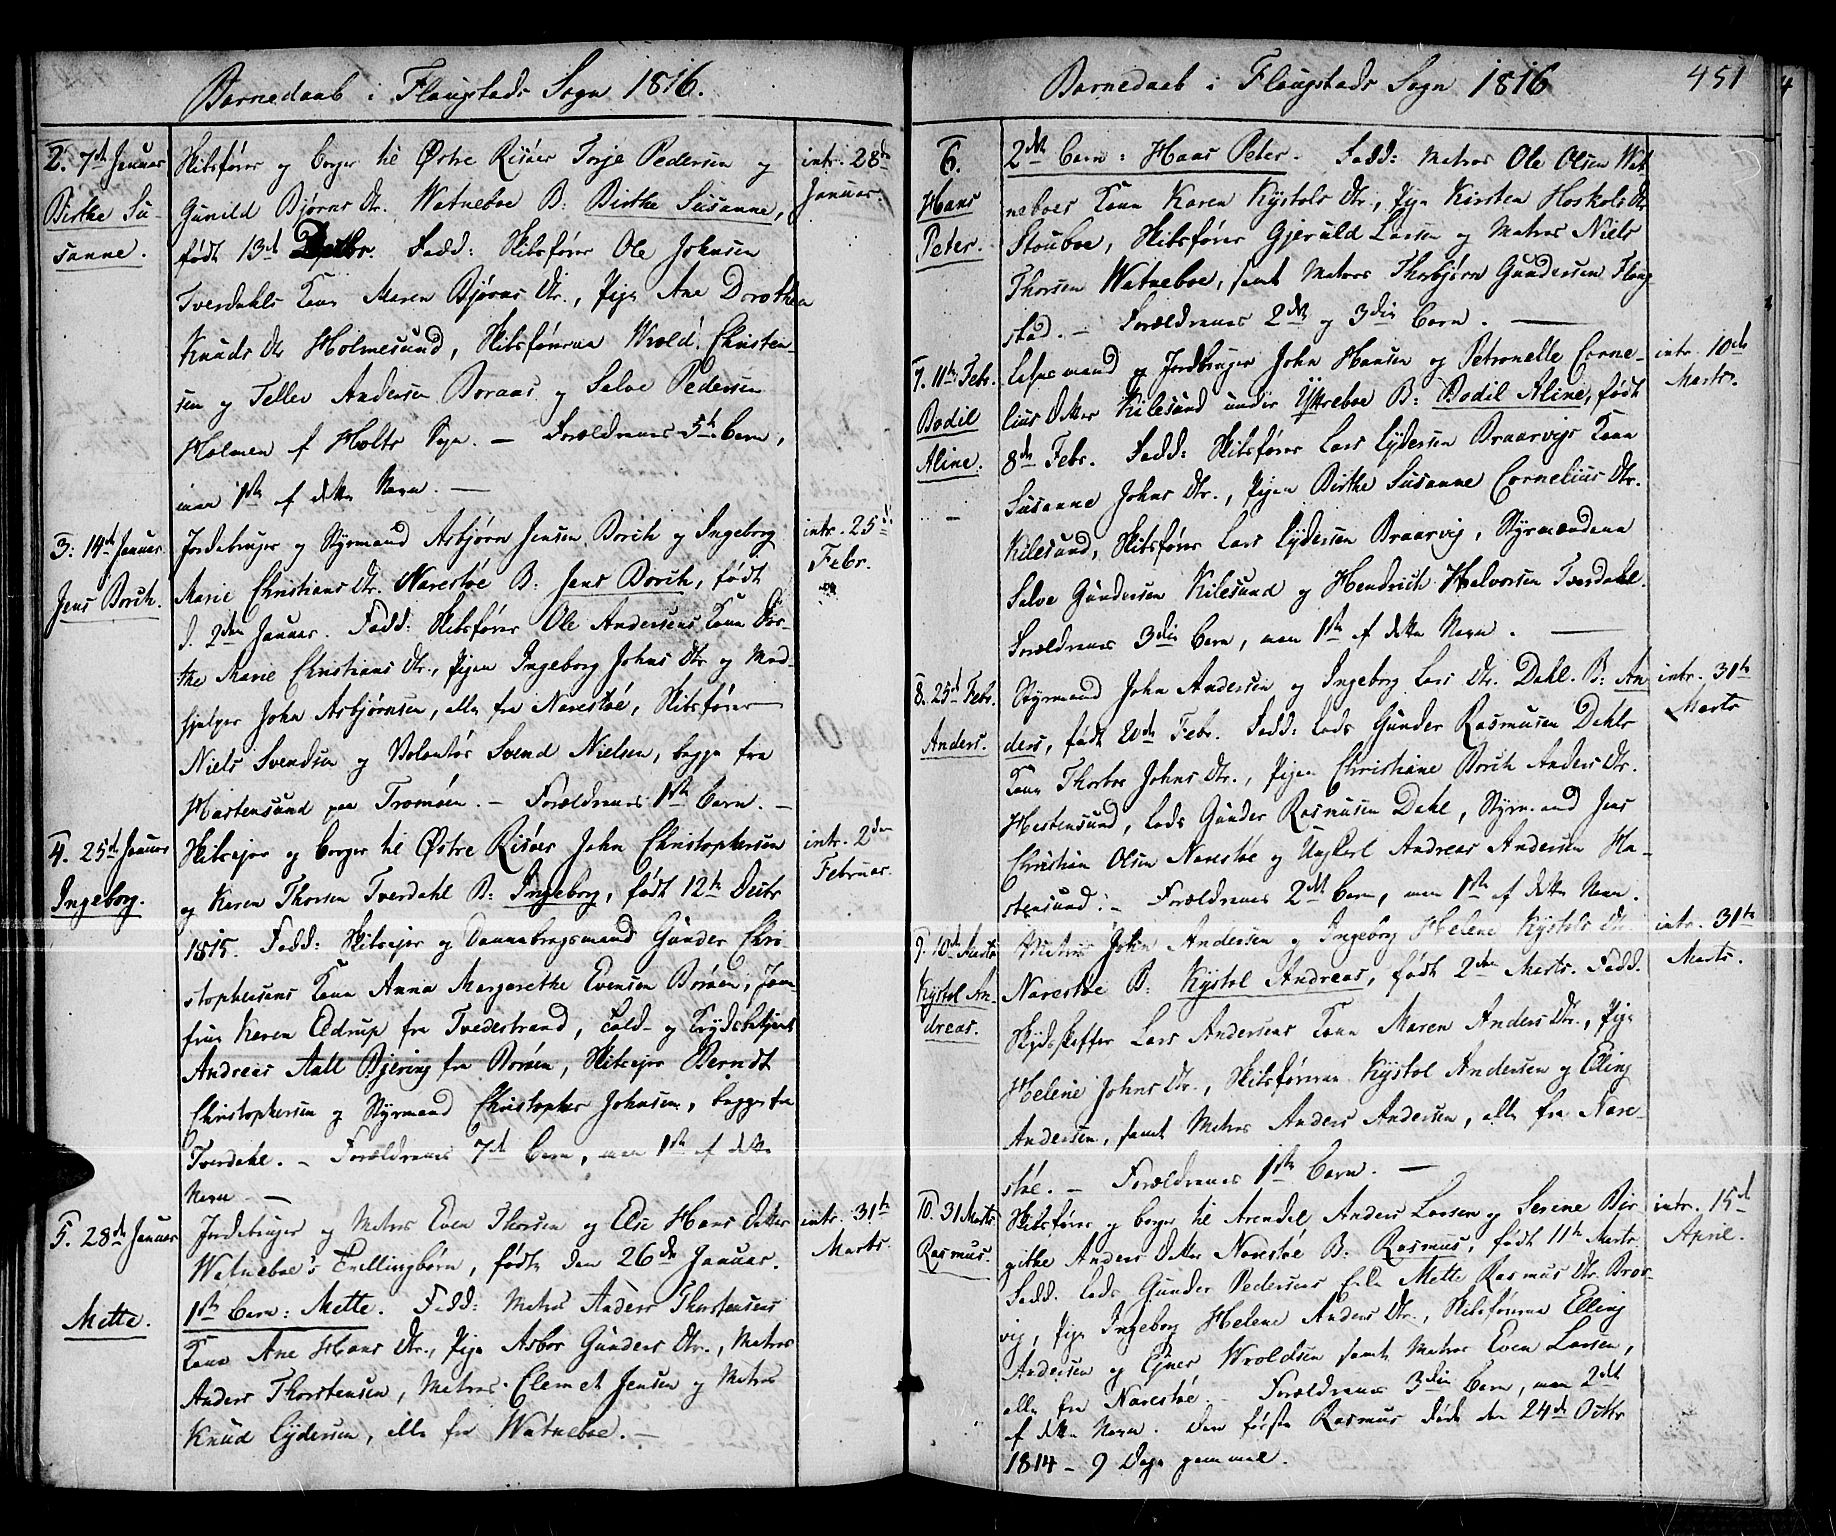 Barnedaab i Flaugstads Sogn 1816.
2. 7de Januar
Birthe Su-
sanne.
Skibsfører og borger til Østre Riisøer Terje Pedersen og
Gunild Bjørns Dr. Watneboe B: Birthe Susanne,
født 13de Decbr. Fadd: Skibsfører Ole Johnsen
Tverdahls Kone Maren Bjørns Dr., Pige Ane Dorothea
Knuds Dr Holmesund, Skibsførerne Wrold Christen-
sen og Tellev Andersen Boraas og Salve Pedersen
Holmen af Holts Sogn. — Forældrenes 5te barn,
men 1ste af dette Navn. —
intr. 28de
Januar.
3. 14de Januar
Jens Borch.
Jordebruger og Styrmand Asbjørn Jensen Borch og Ingeborg
Marie Christians Dr. Narestøe B: Jens Borch, født
d. 2den Januar. Fadd: Skibsfører Ole Andersens Kone Dor-
the Marie Christians Dr., Pigen Ingeborg Johns Dr og Med-
hjelper John Asbjørnsen, alle fra Narestøe, Skibsfører
Niels Svendsen og Volontør Svend Nielsen, begge fra
Hastensund paa Tromøen. — Forældrenes 1ste barn. —
intr. 25de
Febr.
4. 25de Januar
Ingeborg.
Skibsejer og borger til Østre Riisøer John Christophersen
og Karen Thorsen Tverdahl B: Ingeborg, født 12te Decbr
1815. Fadd: Skibsejer og Dannebrogsmand Gunder Chri-
stophersens Kone Anna Margarethe Evensen Borøen, Jom-
frue Karen Eldrup fra Tvedestrand, Told- og Krydsbetjent
Andreas Aall Bjering fra Borøen, Skibsejer Berndt
Christophersen og Styrmand Christopher Johnsen, begge fra
Tverdahl. — Forældrenes 7de barn, men 1ste af dette
Navn. —
intr. 2den
Februar.
5. 28de Januar
Mette.
Jordebruger og Matros Even Thorsen og Else Hans Datter
Watneboe's Tvillingbørn, fødte den 26de Januar.
1ste barn: Mette. Fadd: Matros Anders Thorstensens
Kone Ane Hans Dr., Pige Asbor Gunders Dr., Matros
Anders Thorstensen, Matros Clemet Jensen og Matros
Knud Eydersen, alle fra Watneboe. —
intr. 31te
Marts.
Barnedaab i Flaugstads Sogn 1816
451
6.
Hans
Peter.
2det barn: Hans Peter. Fadd: Matros Ole Olsen Wat-
neboes Kone Karen Kystols Dr., Pige Kirsten Hoskolds Dr
Stouboe, Skibsfører Gjeruld Larsen og Matros Niels
Thorsen Watneboe, samt Matros Thorbjørn Gundersen Flaug-
stad. — Forældrenes 2det og 3die barn. —
7. 11te Febr.
Bodil
Aline.
Lehnsmand og Jordbruger John Hansen og Petronelle Corne-
lius Datter Kilesund under Yttreboe B: Bodil Aline, født
8de Febr. Fadd: Skibsfører Lars Eydersen Braarvigs Kone
Susanne Johns Dr., Pigen Birthe Susanne Cornelius Dr.
Kilesund, Skibsfører Lars Eydersen Braarvig, Styrmændene
Salve Gundersen Kilesund og Hendrich Halvorsen Tverdahl.
Forældrenes 3die barn, men 1ste af dette Navn. —
intr. 10de
Marts.
8. 25de Febr.
Anders.
Styrmand John Andersen og Ingeborg Lars Dr. Dahl. B: An-
ders, født 20de Febr. Fadd: Lods Gunder Rasmusen Dahls
Kone Thorbor Johns Dr., Pigen Christiane Borch Anders Dr.
Hestensund, Lods Gunder Rasmusen Dahl, Styrmand Jens
Christian Olsen Narestøe og Ungkarl Andreas Andersen Ha-
stensund. — Forældrenes 2det barn, men 1ste af dette Navn.
intr. 31te
Marts
9. 10de Marts
Kystol An-
dreas.
Matros John Andersen og Ingeborg Helene Kystols Dr.
Narestøe B: Kystol Andreas, født 2den Marts. Fadd.
Skydsskaffer Lars Andersens Kone Maren Anders Dr., Pige
Helene Johns Dr., Skibsførerne Kystol Andersen og Elling
Andersen, samt Matros Anders Andersen, alle fra Nare-
støe. — Forældrenes 1ste barn. —
intr. 31te
Marts.
10. 31 Marts
Rasmus.
Skibsfører og borger til Arendal Anders Larsen og Serine Bir-
githe Anders Datter Narestøe B: Rasmus, født 11te Marts
Fadd. Lods Gunder Pedersens Enke Mette Rasmus Dr. Bror-
vig, Pige Ingeborg Helene Anders Dr., Skibsførerne Elling
Andersen og Ejner Wroldsen samt Matros Even Larsen,
alle fra Narestøe. Forældrenes 3die barn, men 2det
af dette Navn. Den første Rasmus døde den 24de Octbr
1814 — 9 Dage gammel.
intr. 15de
April.